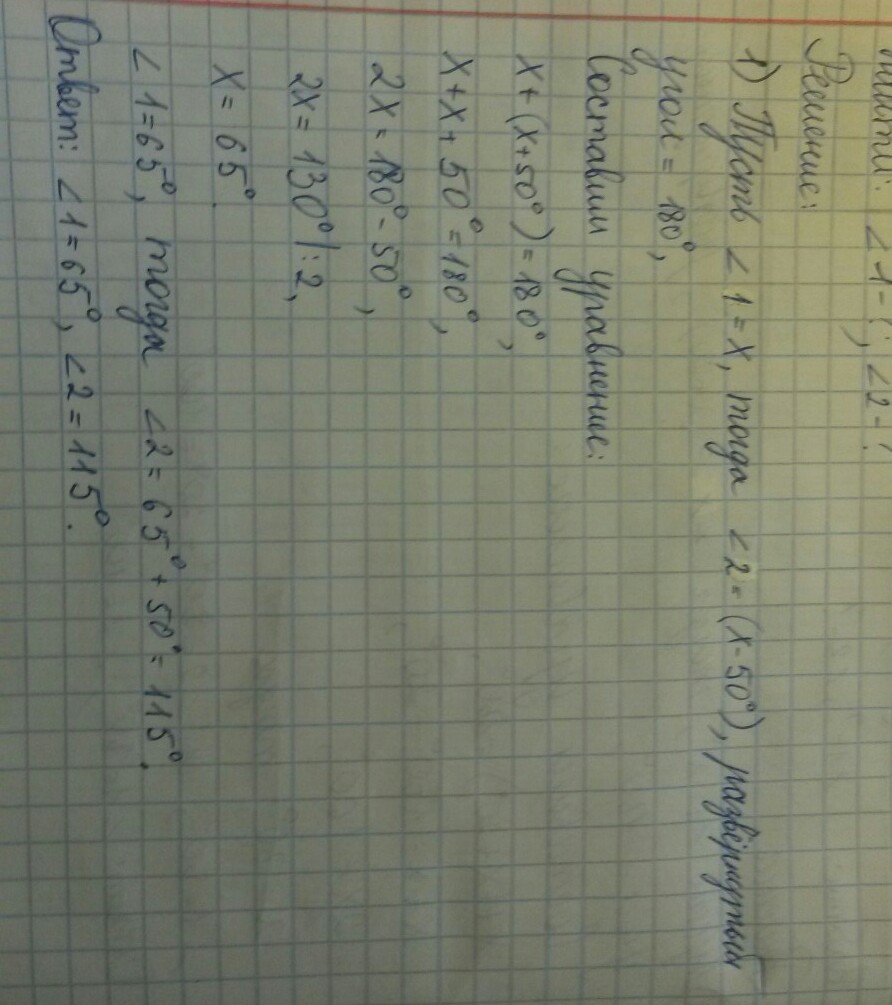 ∠1-?, ∠2-?
Решение:
1) Пусть ∠1=x, тогда ∠2=(x-50°), развёрнутый
угол = 180°,
Составим уравнение:
x+(x+50°)=180°,
x+x+50°=180°,
2x=180°-50°,
2x=130°|:2,
x=65°.
∠1=65°, тогда ∠2=65°+50°=115°.
Ответ: ∠1=65°, ∠2=115°.